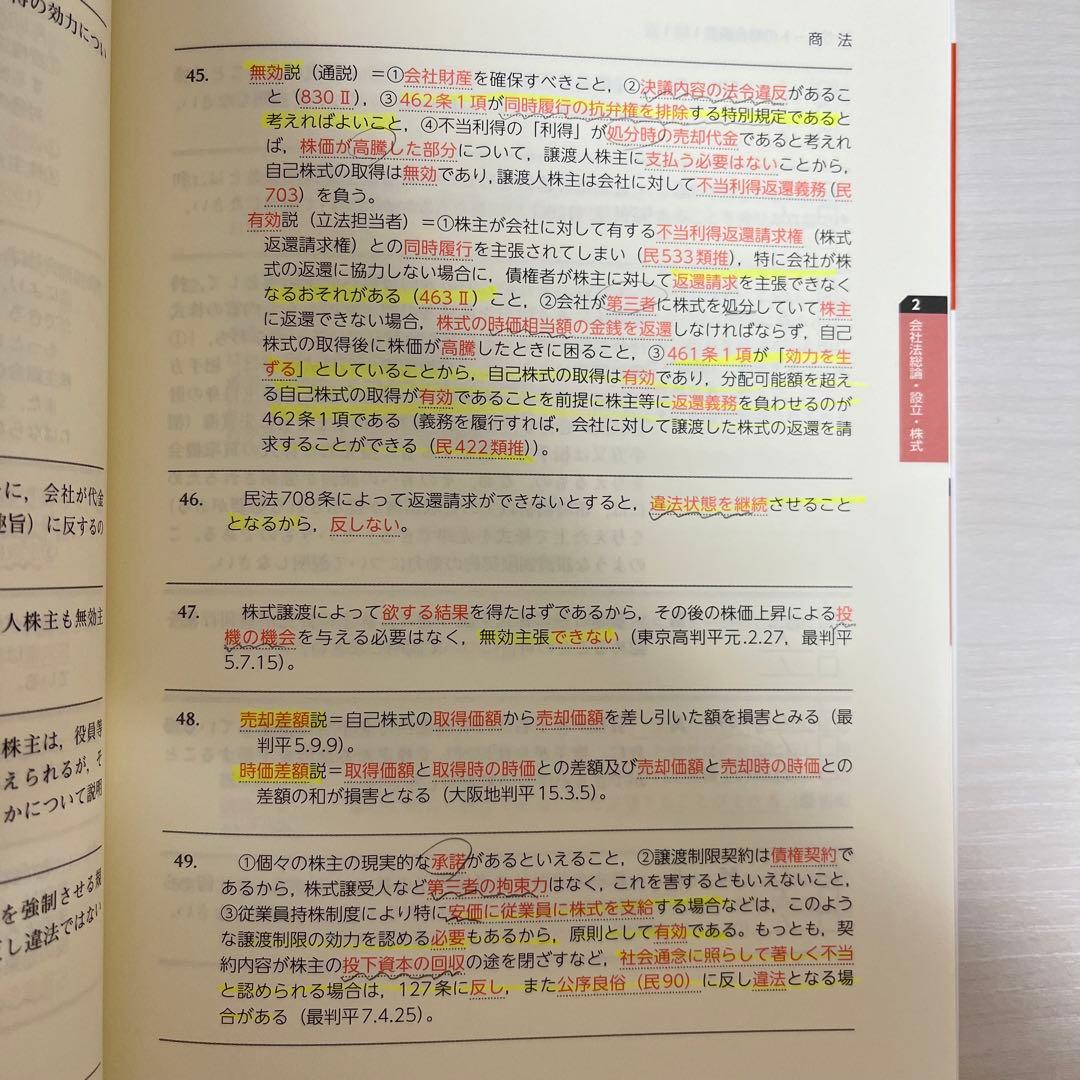 商 法
45. 無効説（通説）＝①会社財産を確保すべきこと，②決議内容の法令違反があるこ
と（830Ⅱ），③462条1項が同時履行の抗弁権を排除する特別規定であると
考えればよいこと，④不当利得の「利得」が処分時の売却代金であると考えれ
ば，株価が高騰した部分について，譲渡人株主に支払う必要はないことから，
自己株式の取得は無効であり，譲渡人株主は会社に対して不当利得返還義務（民
703）を負う。
有効説（立法担当者）＝①株主が会社に対して有する不当利得返還請求権（株式
返還請求権）との同時履行を主張されてしまい（民533類推），特に会社が株
式の返還に協力しない場合に，債権者が株主に対して返還請求を主張できなく
なるおそれがある（463Ⅱ）こと，②会社が第三者に株式を処分していて株主
に返還できない場合，株式の時価相当額の金銭を返還しなければならず，自己
株式の取得後に株価が高騰したときに困ること，③461条1項が「効力を生
ずる」としていることから，自己株式の取得は有効であり，分配可能額を超え
る自己株式の取得が有効であることを前提に株主等に返還義務を負わせるのが
462条1項である（義務を履行すれば，会社に対して譲渡した株式の返還を請
求することができる（民422類推））。
46. 民法708条によって返還請求ができないとすると，違法状態を継続させること
となるから，反しない。
47. 株式譲渡によって欲する結果を得たはずであるから，その後の株価上昇による投
機の機会を与える必要はなく，無効主張できない（東京高判平元.2.27，最判平
5.7.15）。
48. 売却差額説＝自己株式の取得価額から売却価額を差し引いた額を損害とみる（最
判平5.9.9）。
時価差額説＝取得価額と取得時の時価との差額及び売却価額と売却時の時価との
差額の和が損害となる（大阪地判平15.3.5）。
49. ①個々の株主の現実的な承諾があるといえること，②譲渡制限契約は債権契約で
あるから，株式譲受人など第三者の拘束力はなく，これを害するともいえないこと，
③従業員持株制度により特に安価に従業員に株式を支給する場合などは，このよう
な譲渡制限の効力を認める必要もあるから，原則として有効である。もっとも，契
約内容が株主の投下資本の回収の途を閉ざすなど，社会通念に照らして著しく不当
と認められる場合は，127条に反し，また公序良俗（民90）に反し違法となる場
合がある（最判平7.4.25）。
2
会社法総論・設立・株式
得の効力につい
に，会社が代金
趣旨）に反するの
人株主も無効主
株主は，役員等
えられるが，そ
かについて説明
を強制させる規
し違法ではない